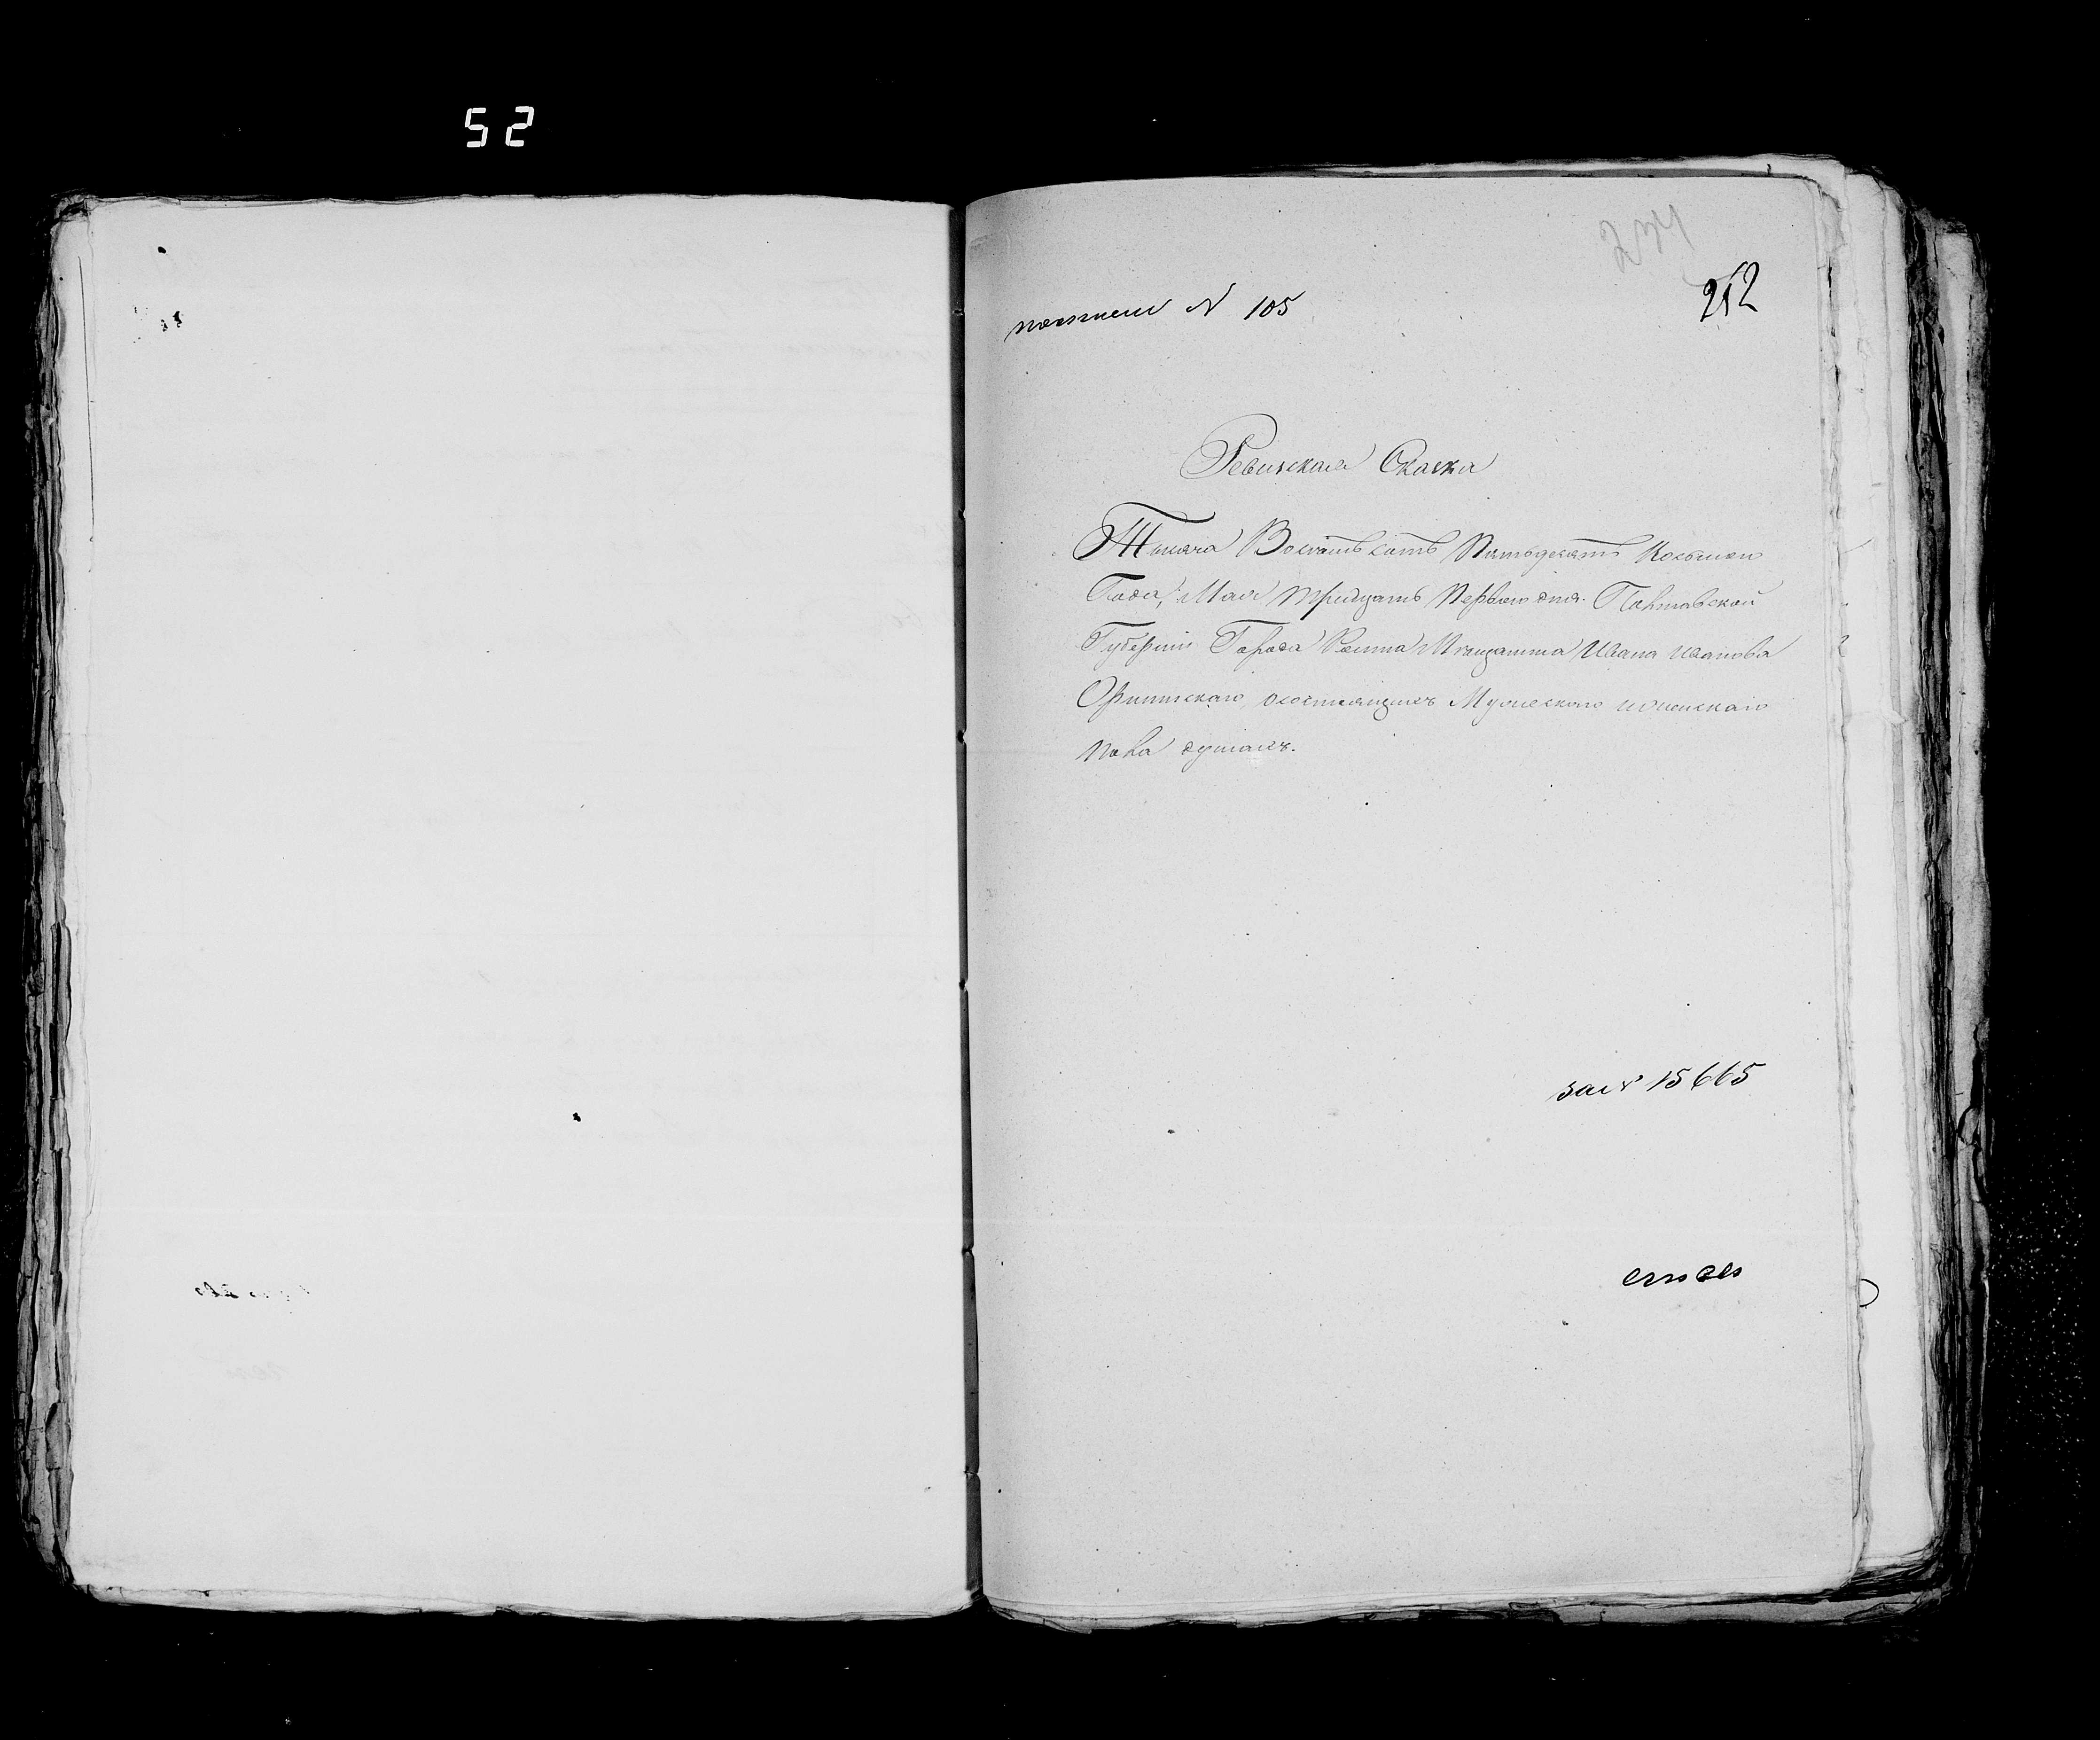 52
234
252
N 105
Ревизская Сказка
Тысяча Восѣмъ сотъ Пятьдесятъ Восьмаго
Года, Мая тридцать Перваго дня. Полтавской
Губерніи Города Ромна Мѣщанина Ивана Иванова
осостоящихъ Мужескаго иженскаго
пола душахъ.
15665